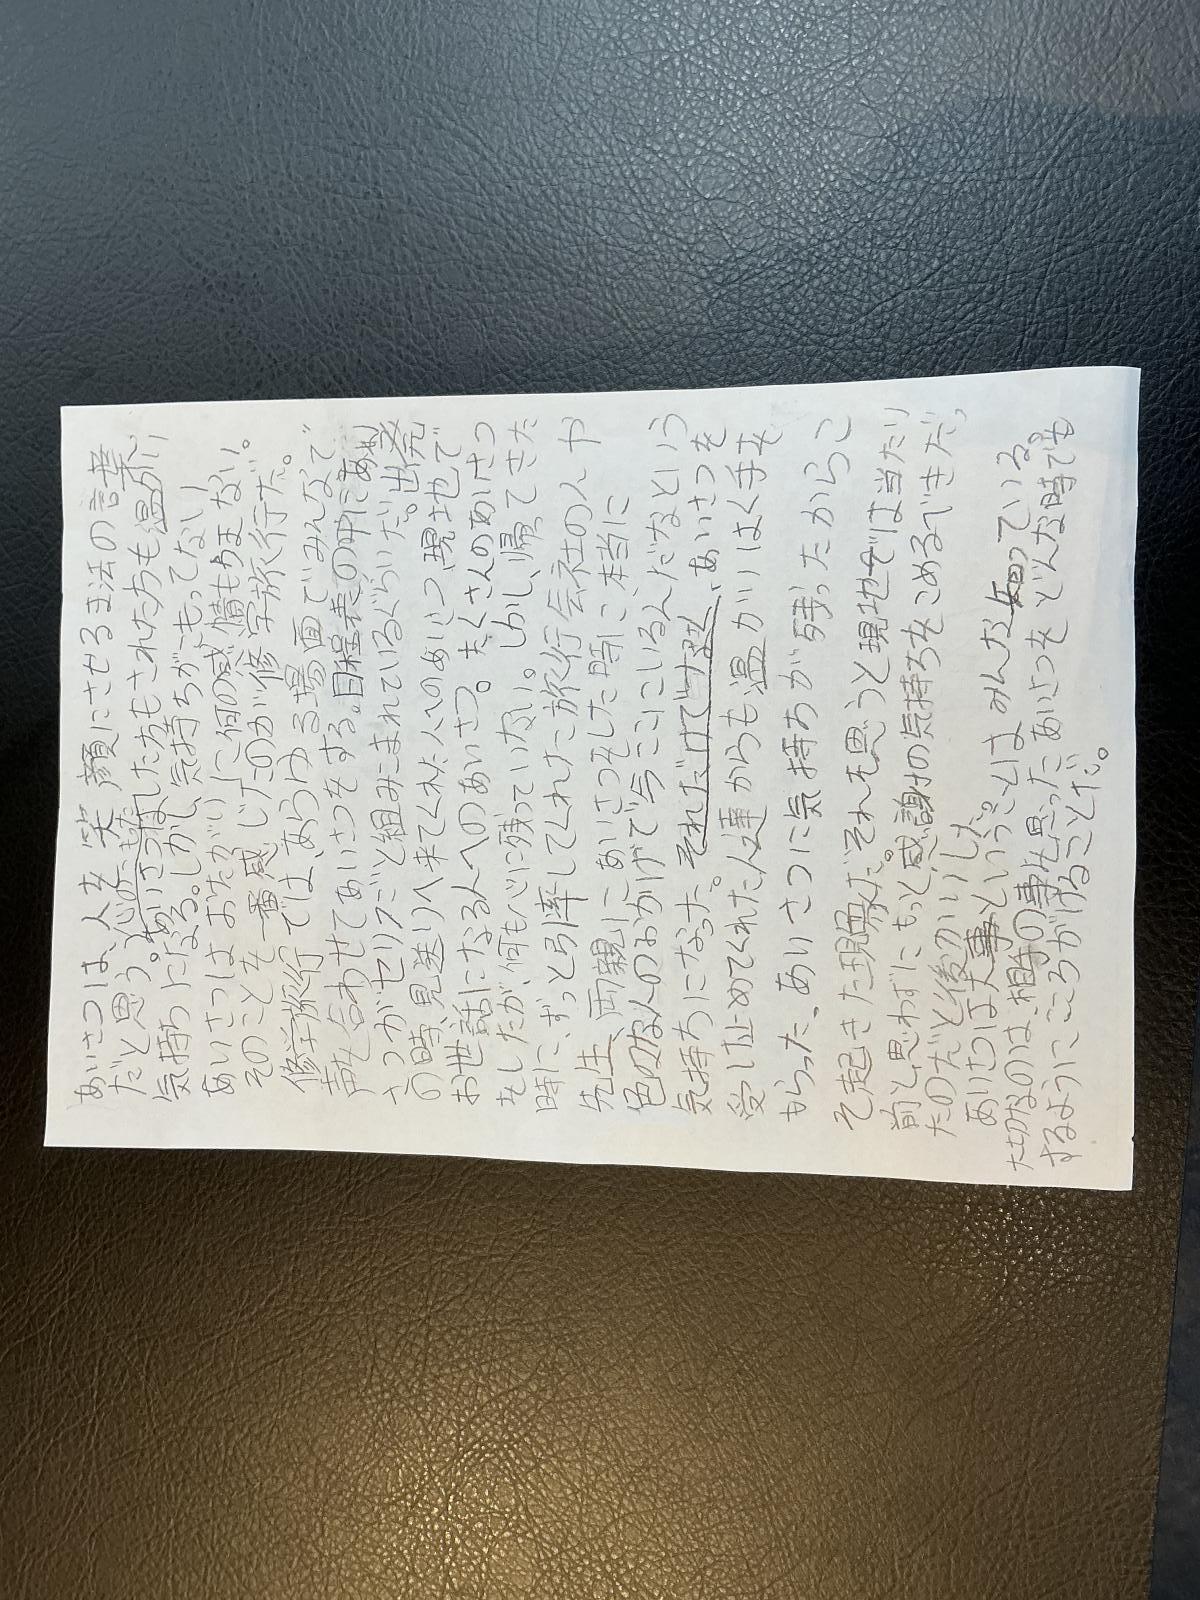 あいさつは、人を笑顔にさせる主法の言葉
だと思う。心のこもったあいさつはした方もされた方も温かい
気持ちになる。しかし、気持ちがこもってない
あいさつはおたがいに何の感情もうまない。
そのことを一番感じたのが修学旅行だ。
修学旅行では、あらゆる場面でみんなで
声を合わせてあいさつをする。日程表の中にあい
さつがセリフごと組みこまれているぐらいだ。出発
の時、見送りへ来てくれた人へのあいさつ、現地で
お世話になる人へのあいさつ。たくさんのあいさつ
をしたが、何も心に残っていない。しかし、帰ってきた
時に、ずっと引率してくれたこ旅行会社の人や
先生、両親にあいさつをした時に、本当に
色々な人のおかげで今ここにいるんだなという
気持ちになった。それだけでなく、あいさつを
受け止めてくれた人達からも温かいはく手を
もらった。あいさつに気持ちが残ったからこ
そ起きた現象だ。それを思うと現地では当たり
前と思わずにもっと感謝の気持ちをこめるべきだっ
たのだと後かいした。
あいさつは大事ということはみんな知っている。
大切なのは、相手の事を思ったあいさつをどんな時でも
するようにこころがけることだ。